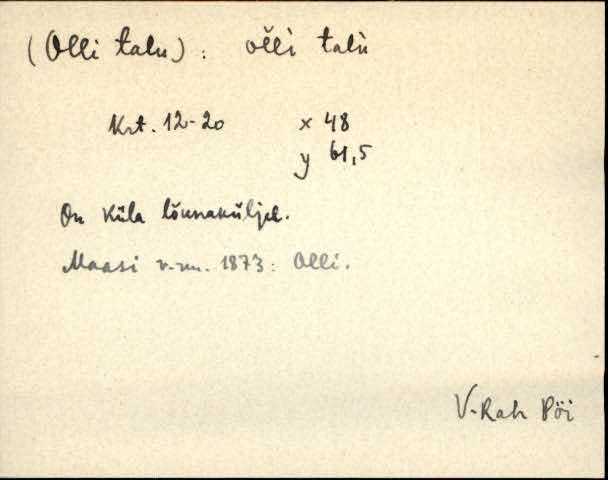 (Olli talu): olli talu
Krt. 12-20 x 48
y 61,5
On küla lõunaküljel.
Maasi v.-m. 1873: Olli.
V-Rah Pöi